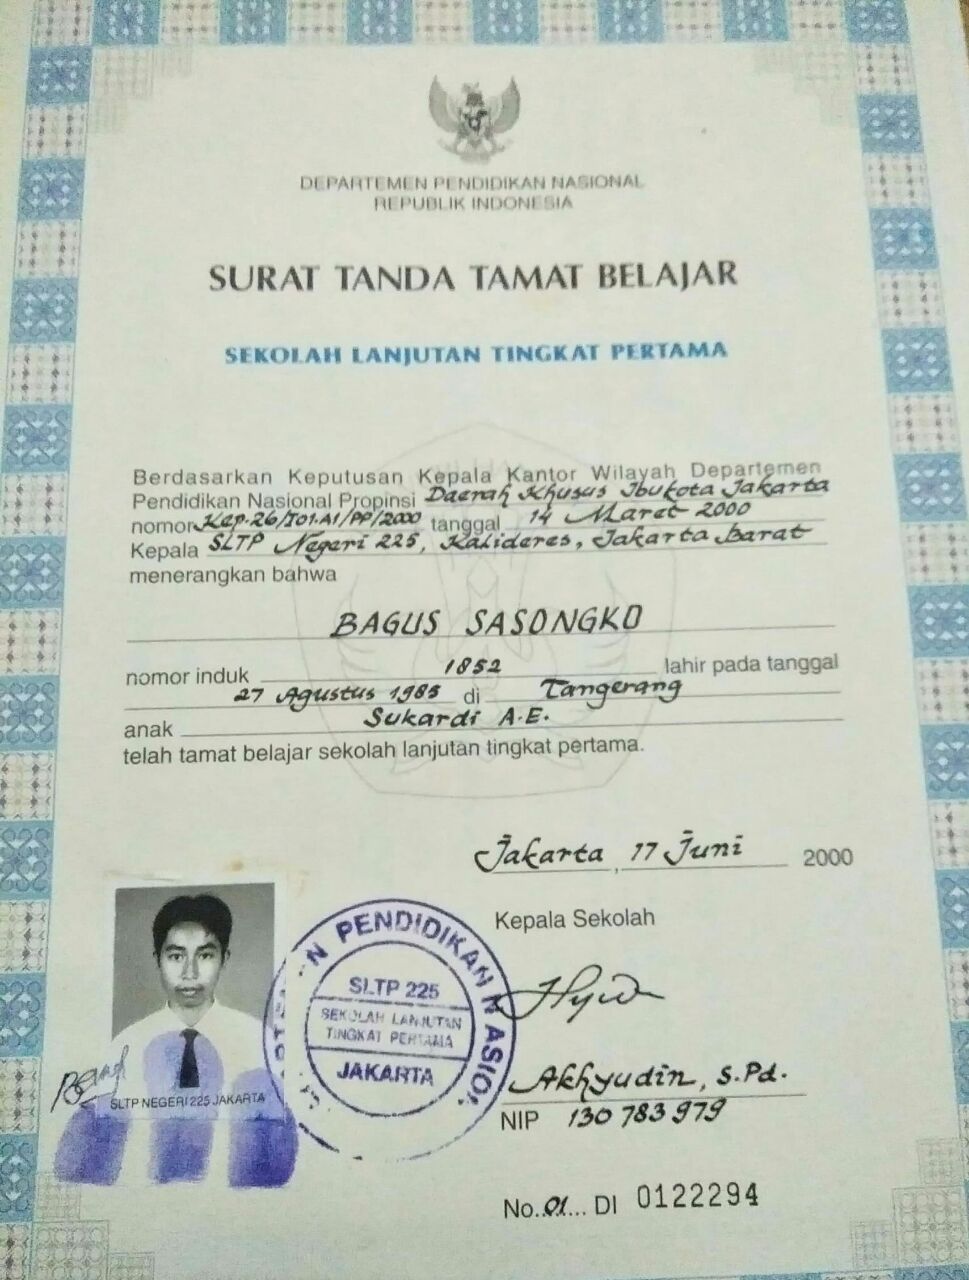 DEPARTEMEN PENDIDIKAN NASIONAL
REPUBLIK INDONESIA
SURAT TANDA TAMAT BELAJAR
SEKOLAH LANJUTAN TINGKAT PERTAMA
Berdasarkan Keputusan Kepala Kantor Wilayah Departemen
Pendidikan Nasional Propinsi Daerah Khusus Ibukota Jakarta
nomor Kep.26/I01.A1/PP/2000 tanggal 14 Maret 2000
Kepala SLTP Negeri 225, Kalideres, Jakarta Barat
menerangkan bahwa
BAGUS SASONGKO
nomor induk 1852 lahir pada tanggal
27 Agustus 1985 di Tangerang
anak Sukardi A.E.
telah tamat belajar sekolah lanjutan tingkat pertama.
Jakarta, 17 Juni 2000
Kepala Sekolah
PENDIDIKAN NASIONAL
SLTP 225
SEKOLAH LANJUTAN
TINGKAT PERTAMA
JAKARTA
SLTP NEGERI 225 JAKARTA
Akhyudin, S.Pd.
NIP 130 783 979
No. 01 ... DI 0122294